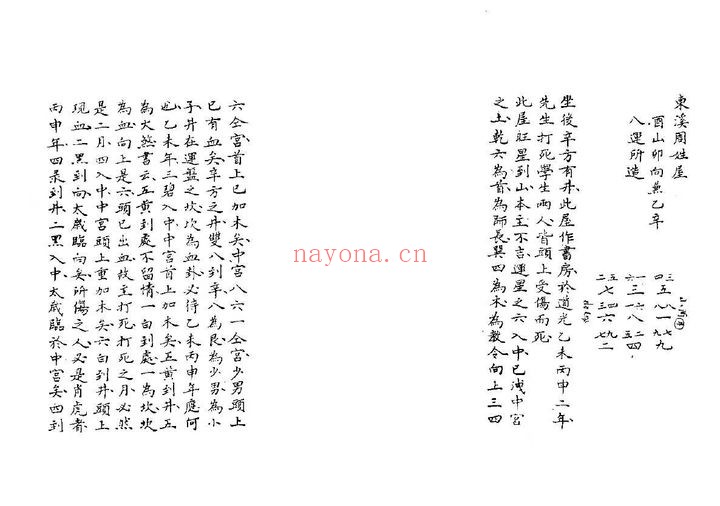 東溪周姓屋
酉山卯向兼乙辛
八運所造
坐後辛方有井此屋作書房於道光乙未丙申二年
先生打死學生兩人皆頭上受傷而死
此屋旺星到山本主不吉運星之六入中已洩中宮
之土乾六為首為師長巽四為木為教令向上三四
六仝宮首上已加木矣中宮八六一仝宮少男頭上
已有血矣辛方之井雙八到辛八為艮為少男為小
子井在運盤之坎坎為血卦必待乙未丙申年應何
也乙未年三碧入中中宮首上加木矣五黄到井五
為火然書云五黄到處不留情一白到處一為坎坎
為血向上是六頭已出血故主打死打死之月必然
是二月四入中中宮頭上重加木矣六白到井頭上
現血二黑到向太歲臨向矣所傷之人必是肖虎者
丙申年四彔到井二黑入中太歲臨於中宮矣四到
nayona.cn